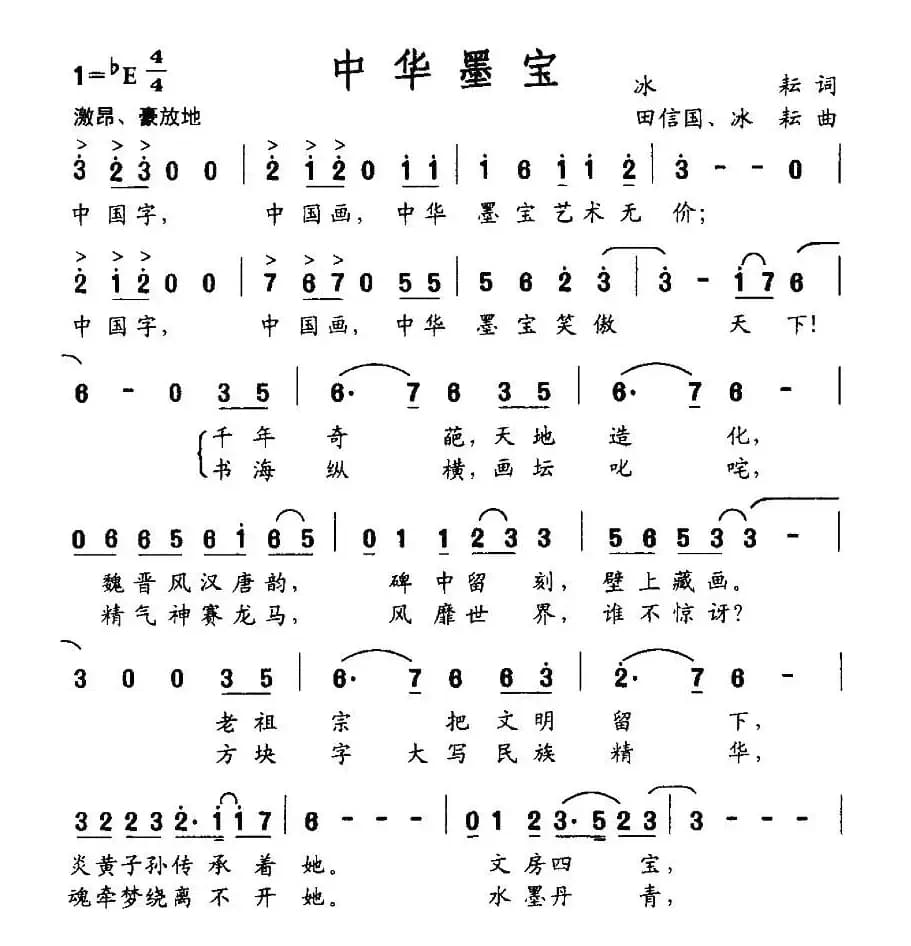 中华墨宝
1=♭E 4/4
冰 耘 词
激昂、豪放地
田信国、冰 耘 曲
3 2 3 0 0 | 2 1 2 0 1 1 | 1 6 1 1 2 | 3 - - 0 |
中国字, 中国画, 中华 墨宝艺术无 价;
2 1 2 0 0 | 7 6 7 0 5 5 | 5 6 2 3 | 3 - 1 7 6 |
中国字, 中国画, 中华 墨宝笑傲 天 下!
6 - 0 3 5 | 6· 7 6 3 5 | 6· 7 6 - |
千年 奇 葩,天地 造 化,
书海 纵 横,画坛 叱 咤,
0 6 6 5 6 1 6 5 | 0 1 1 2 3 3 | 5 6 5 3 3 3 - |
魏晋风汉唐韵, 碑中留 刻, 壁上藏画。
精气神赛龙马, 风靡世 界, 谁不惊讶?
3 0 0 3 5 | 6· 7 6 6 3 | 2· 7 6 - |
老祖 宗 把文明 留 下,
方块 字 大写民族 精 华,
3 2 2 3 2· 1 1 7 | 6 - - - | 0 1 2 3· 5 2 3 | 3 - - - |
炎黄子孙传 承 着 她。 文房四 宝,
魂牵梦绕离 不 开 她。 水墨丹 青,